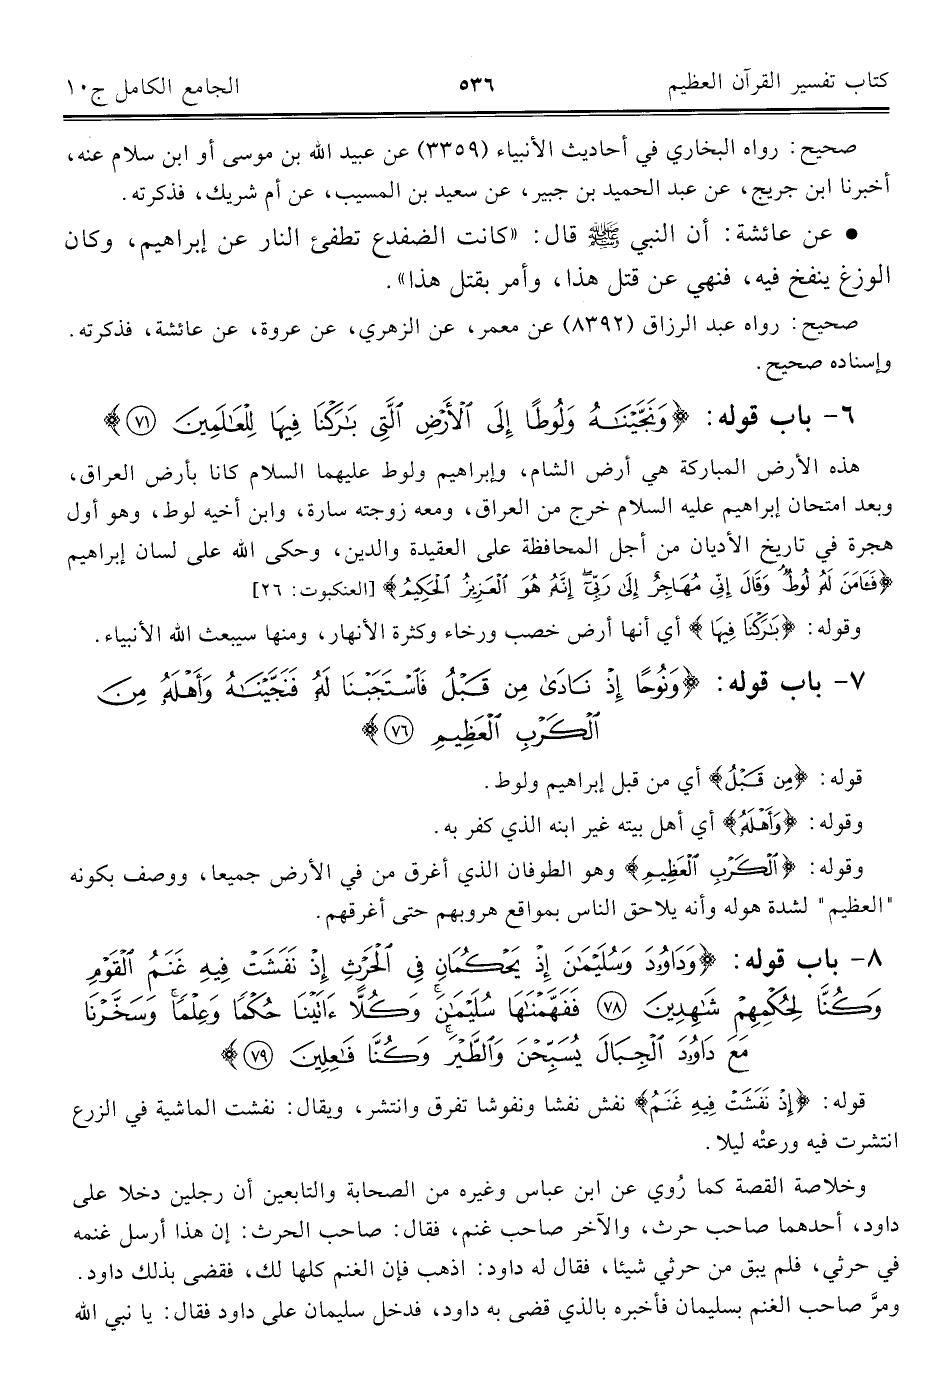 كتاب تفسير القرآن العظيم ٥٣٦ الجامع الكامل ج١٠
صحيح: رواه البخاري في أحاديث الأنبياء (٣٣٥٩) عن عبيد الله بن موسى أو ابن سلام عنه،
أخبرنا ابن جريج، عن عبد الحميد بن جبير، عن سعيد بن المسيب، عن أم شريك، فذكرته.
• عن عائشة: أن النبي ﷺ قال: «كانت الضفدع تطفئ النار عن إبراهيم، وكان
الوزغ ينفخ فيه، فنهي عن قتل هذا، وأمر بقتل هذا».
صحيح: رواه عبد الرزاق (٨٣٩٢) عن معمر، عن الزهري، عن عروة، عن عائشة، فذكرته.
وإسناده صحيح.
٦- باب قوله: ﴿وَنَجَّيْنَٰهُ وَلُوطًا إِلَى ٱلْأَرْضِ ٱلَّتِى بَٰرَكْنَا فِيهَا لِلْعَٰلَمِينَ ٧١﴾
هذه الأرض المباركة هي أرض الشام، وإبراهيم ولوط عليهما السلام كانا بأرض العراق،
وبعد امتحان إبراهيم عليه السلام خرج من العراق، ومعه زوجته سارة، وابن أخيه لوط، وهو أول
هجرة في تاريخ الأديان من أجل المحافظة على العقيدة والدين، وحكى الله على لسان إبراهيم
﴿فَـَٔامَنَ لَهُۥ لُوطٌ وَقَالَ إِنِّى مُهَاجِرٌ إِلَىٰ رَبِّىٓ إِنَّهُۥ هُوَ ٱلْعَزِيزُ ٱلْحَكِيمُ﴾ [العنكبوت: ٢٦]
وقوله: ﴿بَٰرَكْنَا فِيهَا﴾ أي أنها أرض خصب ورخاء وكثرة الأنهار، ومنها سيبعث الله الأنبياء.
٧- باب قوله: ﴿وَنُوحًا إِذْ نَادَىٰ مِن قَبْلُ فَٱسْتَجَبْنَا لَهُۥ فَنَجَّيْنَٰهُ وَأَهْلَهُۥ مِنَ
ٱلْكَرْبِ ٱلْعَظِيمِ ٧٦﴾
قوله: ﴿مِن قَبْلُ﴾ أي من قبل إبراهيم ولوط.
وقوله: ﴿وَأَهْلَهُۥ﴾ أي أهل بيته غير ابنه الذي كفر به.
وقوله: ﴿ٱلْكَرْبِ ٱلْعَظِيمِ﴾ وهو الطوفان الذي أغرق من في الأرض جميعا، ووصف بكونه
"العظيم" لشدة هوله وأنه يلاحق الناس بمواقع هروبهم حتى أغرقهم.
٨- باب قوله: ﴿وَدَاوُۥدَ وَسُلَيْمَٰنَ إِذْ يَحْكُمَانِ فِى ٱلْحَرْثِ إِذْ نَفَشَتْ فِيهِ غَنَمُ ٱلْقَوْمِ
وَكُنَّا لِحُكْمِهِمْ شَٰهِدِينَ ٧٨ فَفَهَّمْنَٰهَا سُلَيْمَٰنَ ۚ وَكُلًّا ءَاتَيْنَا حُكْمًا وَعِلْمًا ۚ وَسَخَّرْنَا
مَعَ دَاوُۥدَ ٱلْجِبَالَ يُسَبِّحْنَ وَٱلطَّيْرَ ۚ وَكُنَّا فَٰعِلِينَ ٧٩﴾
قوله: ﴿إِذْ نَفَشَتْ فِيهِ غَنَمُ﴾ نفش نفشا ونفوشا تفرق وانتشر، ويقال: نفشت الماشية في الزرع
انتشرت فيه ورعتْه ليلا.
وخلاصة القصة كما رُوي عن ابن عباس وغيره من الصحابة والتابعين أن رجلين دخلا على
داود، أحدهما صاحب حرث، والآخر صاحب غنم، فقال: صاحب الحرث: إن هذا أرسل غنمه
في حرثي، فلم يبق من حرثي شيئا، فقال له داود: اذهب فإن الغنم كلها لك، فقضى بذلك داود.
ومرَّ صاحب الغنم بسليمان فأخبره بالذي قضى به داود، فدخل سليمان على داود فقال: يا نبي الله